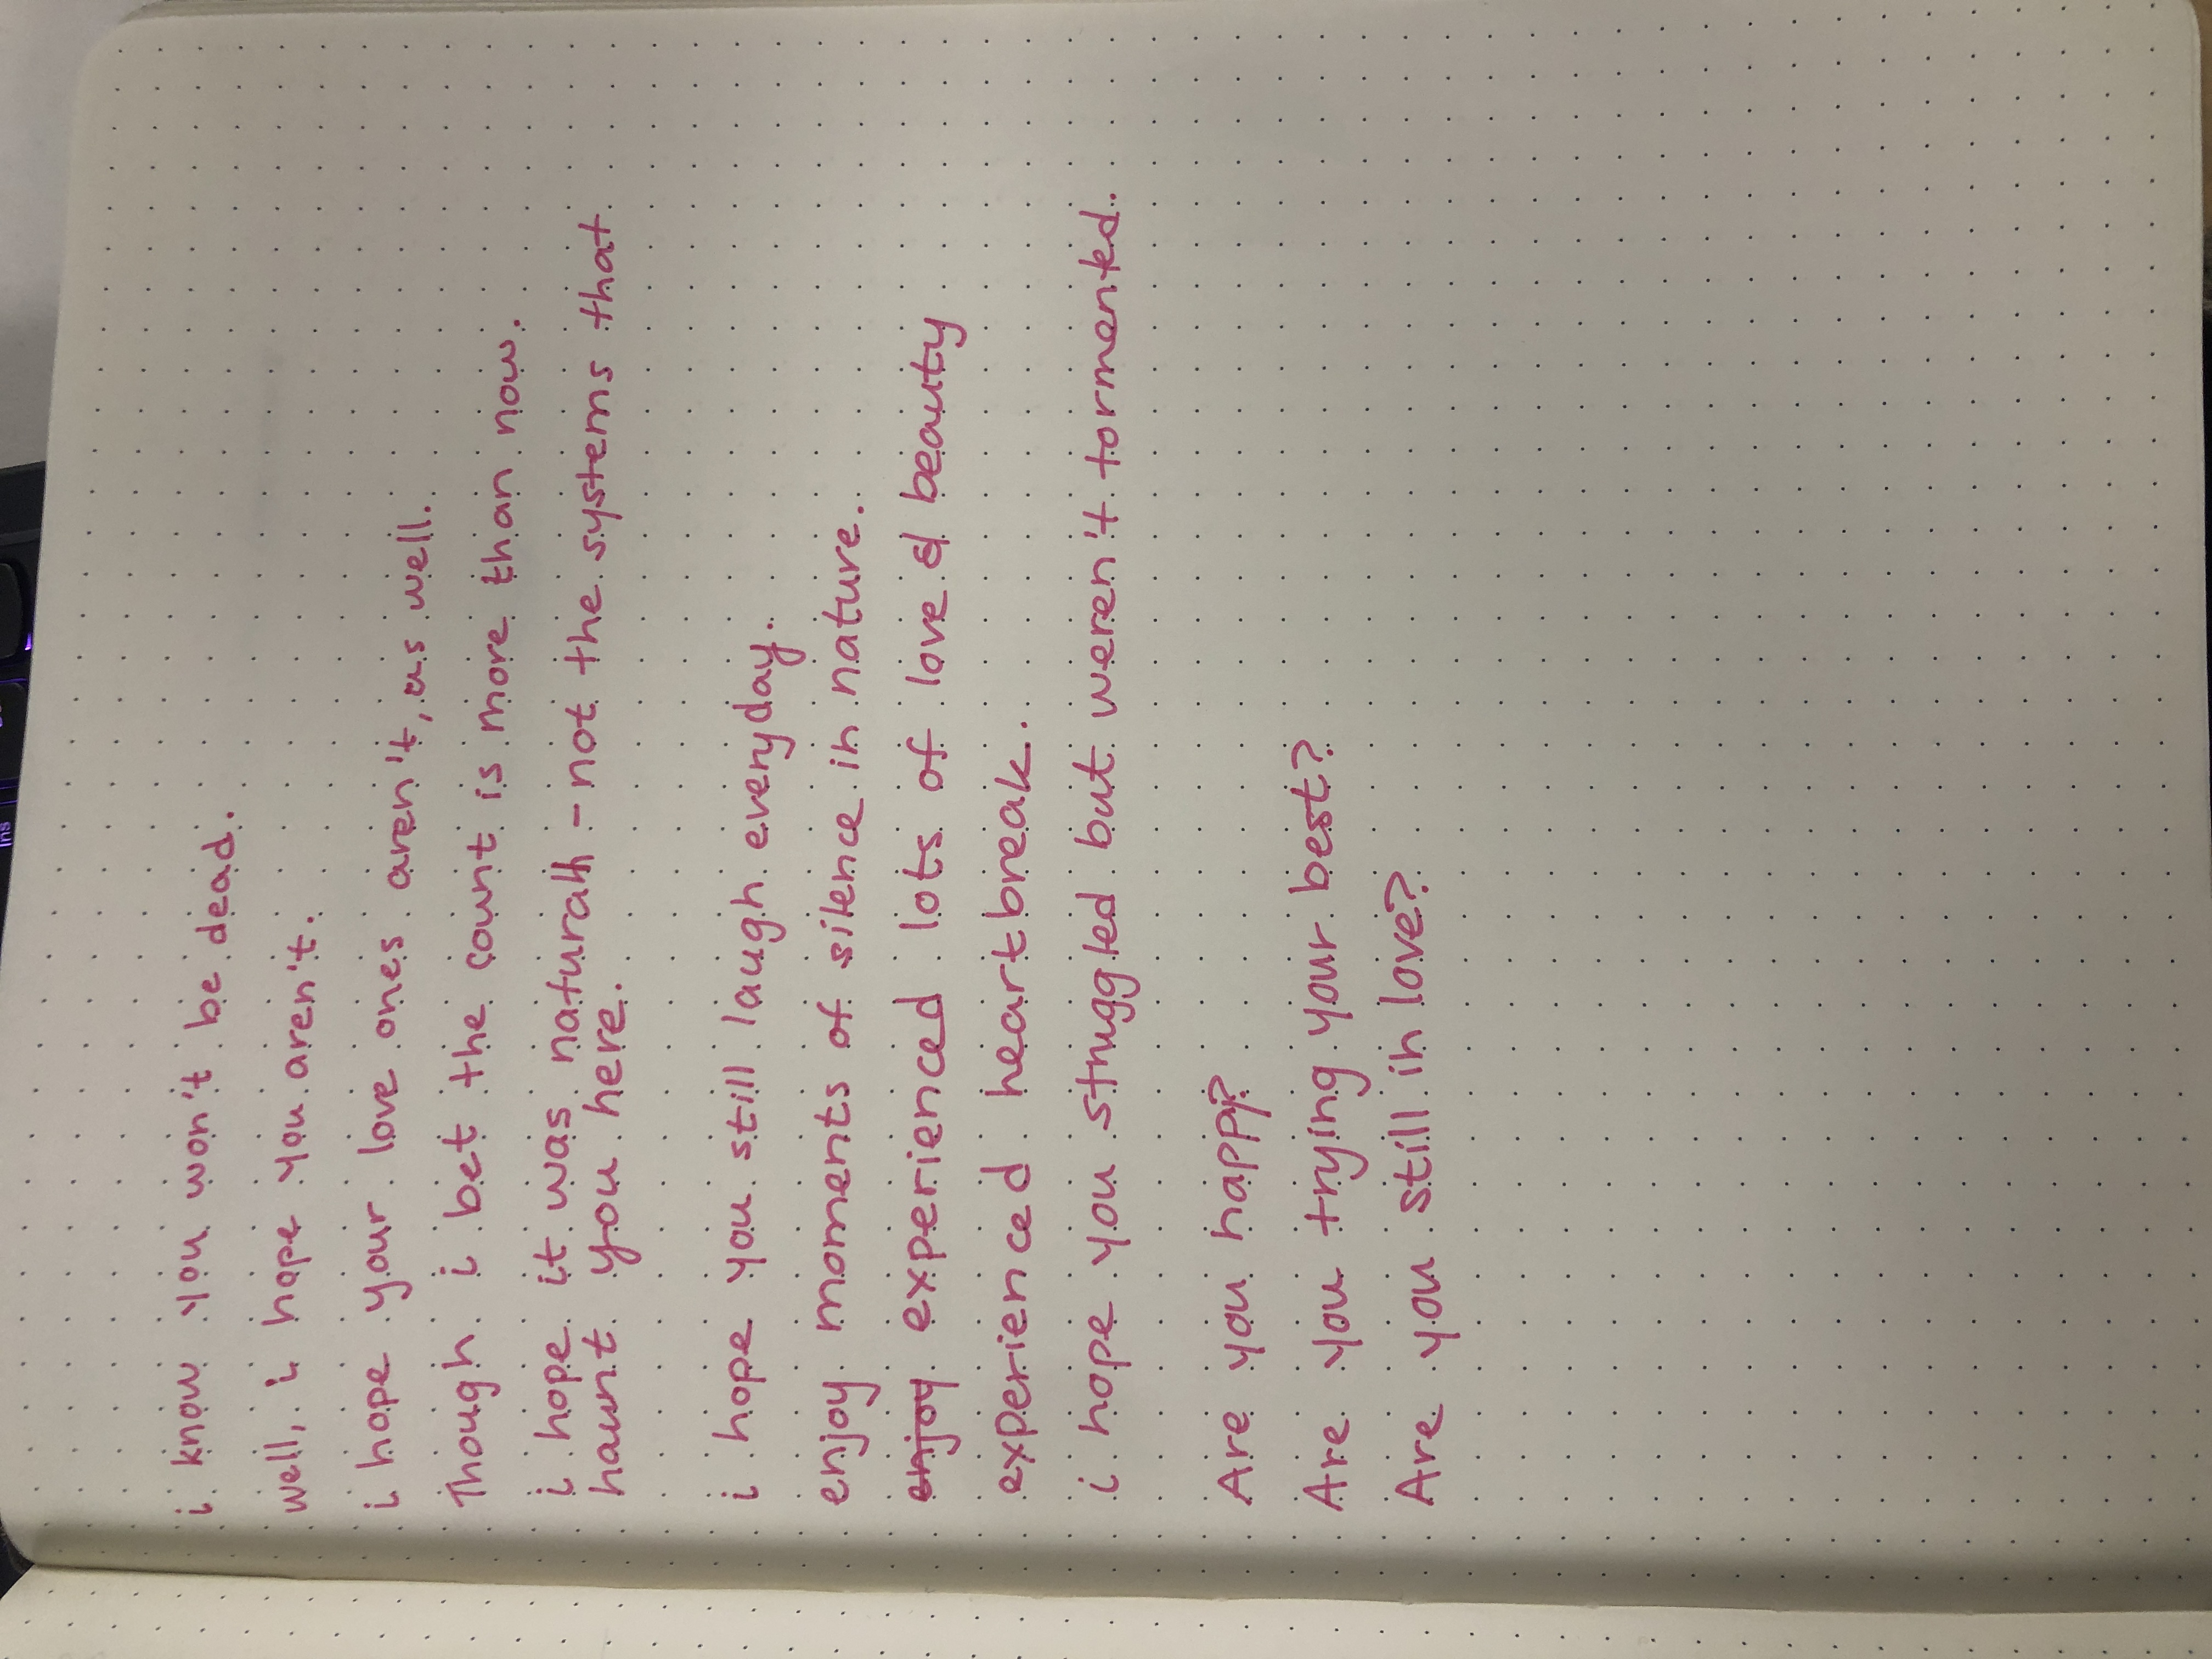 Ins
i know you won't be dead.
well, i hope you aren't.
i hope your love ones aren't, as well.
Though i bet the count is more than now.
i hope it was natural - not the systems that
haunt you here.
i hope you still laugh everyday.
enjoy moments of silence in nature.
enjoy experienced lots of love & beauty
experienced heartbreak.
i hope you struggled but weren't tormented.
Are you happy?
Are you trying your best?
Are you still in love?